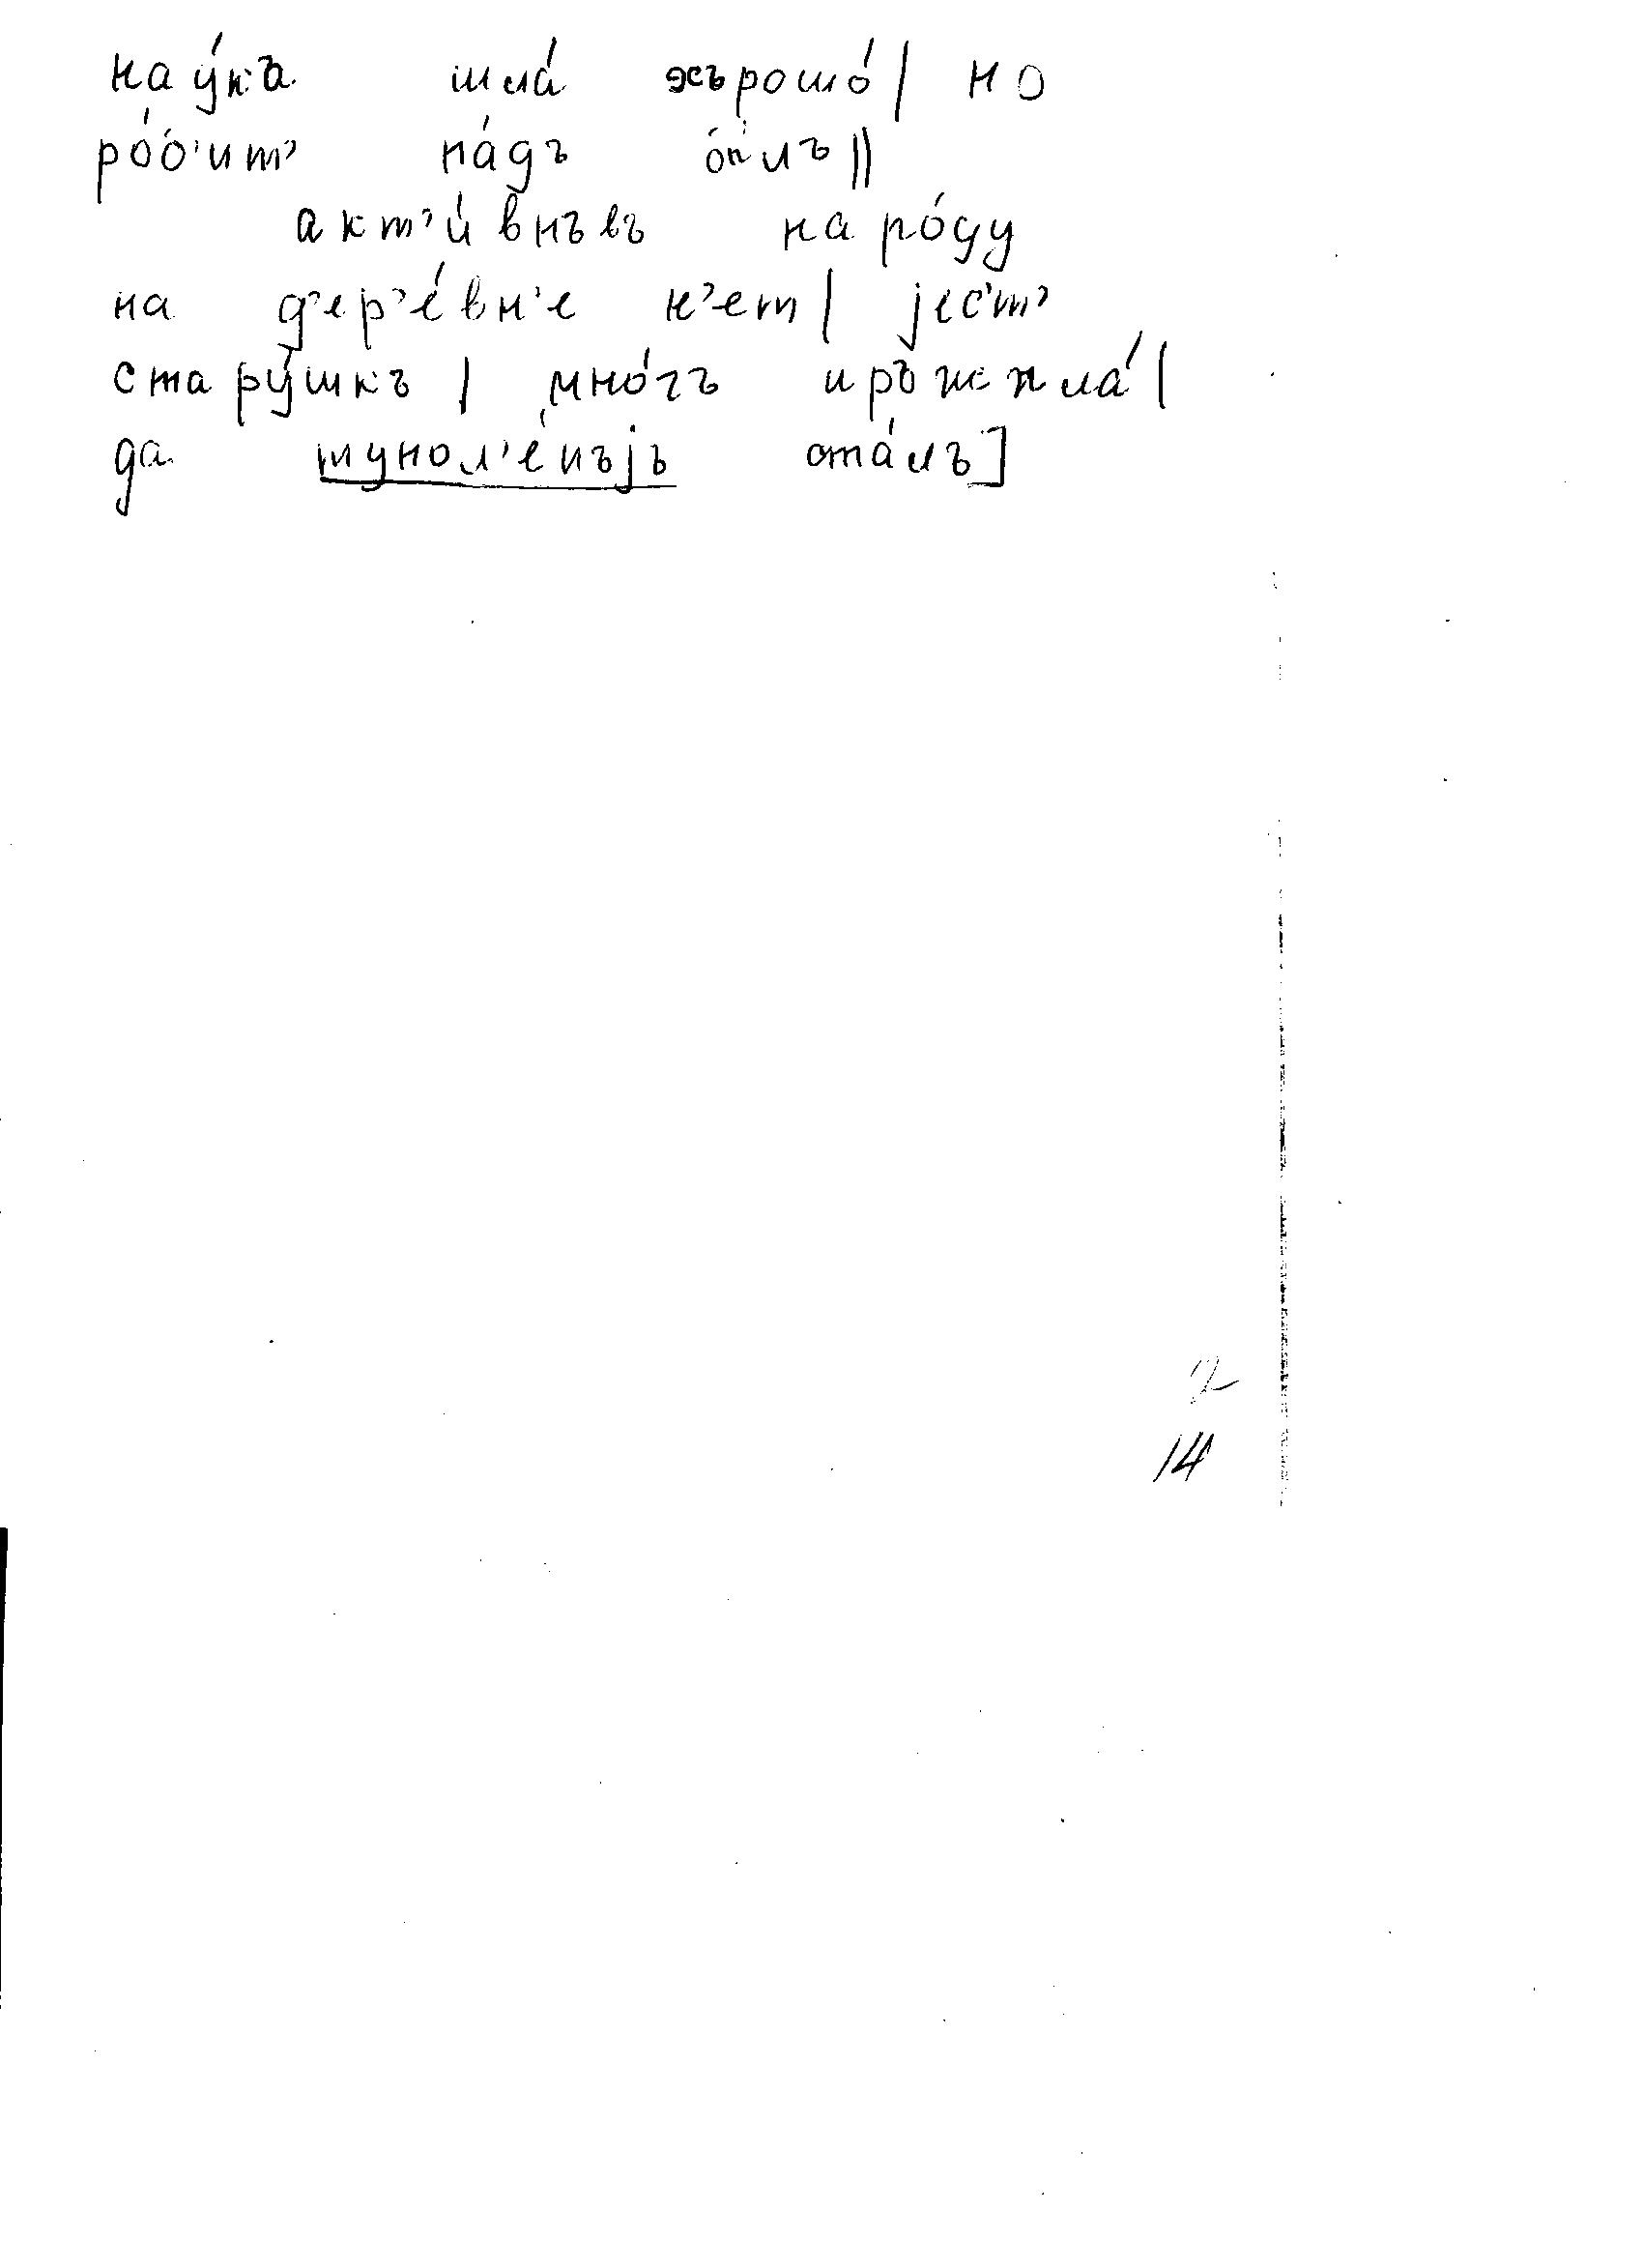 нау́къ шла́ хърошо́ | но
ро́б'ит' на́дъ бы́лъ ||
акт'и́внъвъ наро́ду
на д'ер'е́вн'е н'ет | jес'т'
стару́шкъ | мно́гъ прожыла́ |
да тупол'е́пъjъ ста́лъ]
2
14